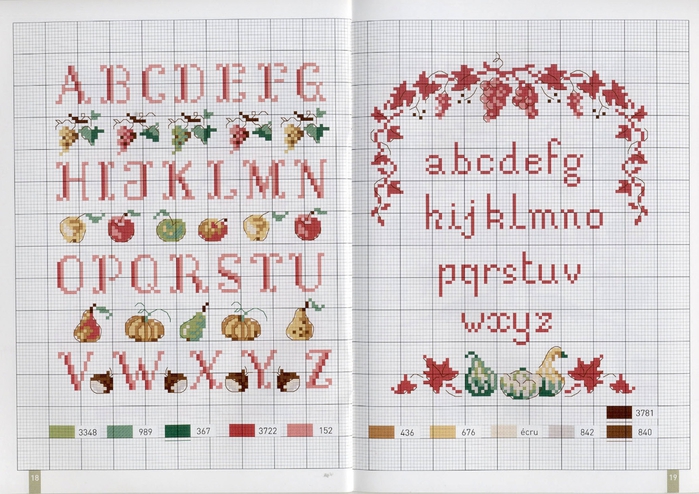 ABCDEFG
HIJKLMN
OPQRSTU
VWXYZ
3348 989 367 3722 152
18
abcdefg
hijklmno
pqrstuv
wxyz
3781
436 676 écru 842 840
19